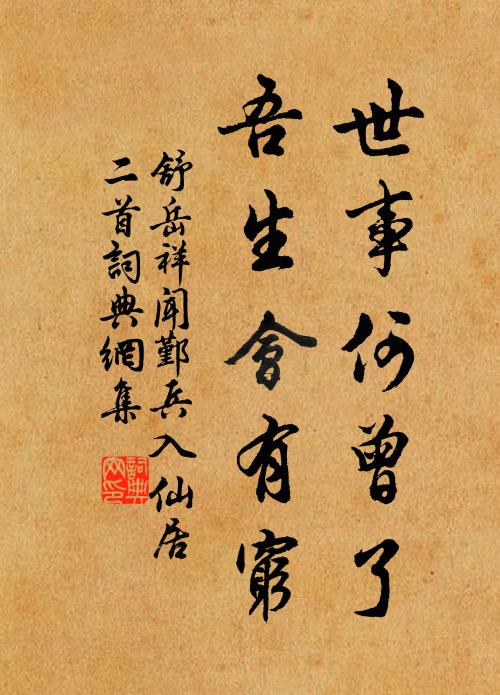 世事何曾了
吾生會有窮
舒岳祥聞鄞兵入仙居
二首詞典網集
詞典
网印